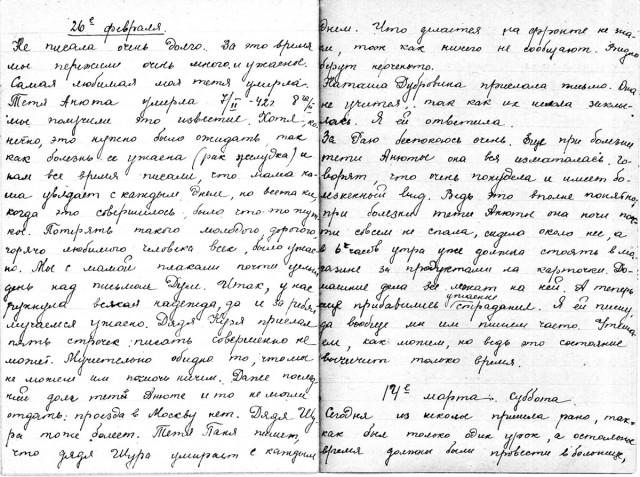 26е февраля.
Не писала очень долго. За это время
мы пережили очень много, и ужасное.
Самая любимая моя тетя умерла.
Тетя Анюта умерла 7/II – 42г
мы получили это известие. Хотя, ко-
нечно, это нужно было ожидать, так
как болезнь ее ужасна (рак желудка) и
нам все время писали, что мама На-
ша увядает с каждым днем, но все таки,
когда это совершилось, было что-то жут-
кое. Потерять такого молодого, дорогого
горячо любимого человека всем, было ужас-
но. Мы с мамой плакали почти целый
день над письмом Дуси. Итак, у нас
рухнула всякая надежда, да и за ребят
мучаемся ужасно. Дядя Юзя прислал
пять строчек: писать совершенно не
может. Мучительно обидно то, что мы
не можем им помочь ничем. Даже послед-
ний долг тете Анюте и то не могли
отдать: проезда в Москву нет. Дядя Шу-
ра тоже болеет. Тетя Паня пишет,
что дядя Шура умирает с каждым
днем. Что делается на фронте не зна-
ем, так как ничего не сообщают. Видно
берут неохотно.
Наташа Дубровина прислала письмо. Она
не учится: так как их школа закры-
лась. Я ей ответила.
За Даю беспокоюсь очень. Еще при болезни
тети Анюты она вся измоталась. Го-
ворят, что очень похудела и имеет бо-
лезненный вид. Ведь это вполне понятно,
при болезни тети Анюты она ночи поч-
ти совсем не спала, сидела около нее, а
в 6 часов утра уже должна стоять в ма-
газине за продуктами на карточки. До-
машние дела все лежат на ней. А теперь
еще прибавились ужасные страдания. Я ей пишу,
да вообще мы им пишем часто. Утеша-
ем, как можем, но ведь это состояние
вылечит только время.
14е марта. суббота.
Сегодня из школы пришла рано, так-
как был только один урок, а остальное
время должны были провести в больнице,